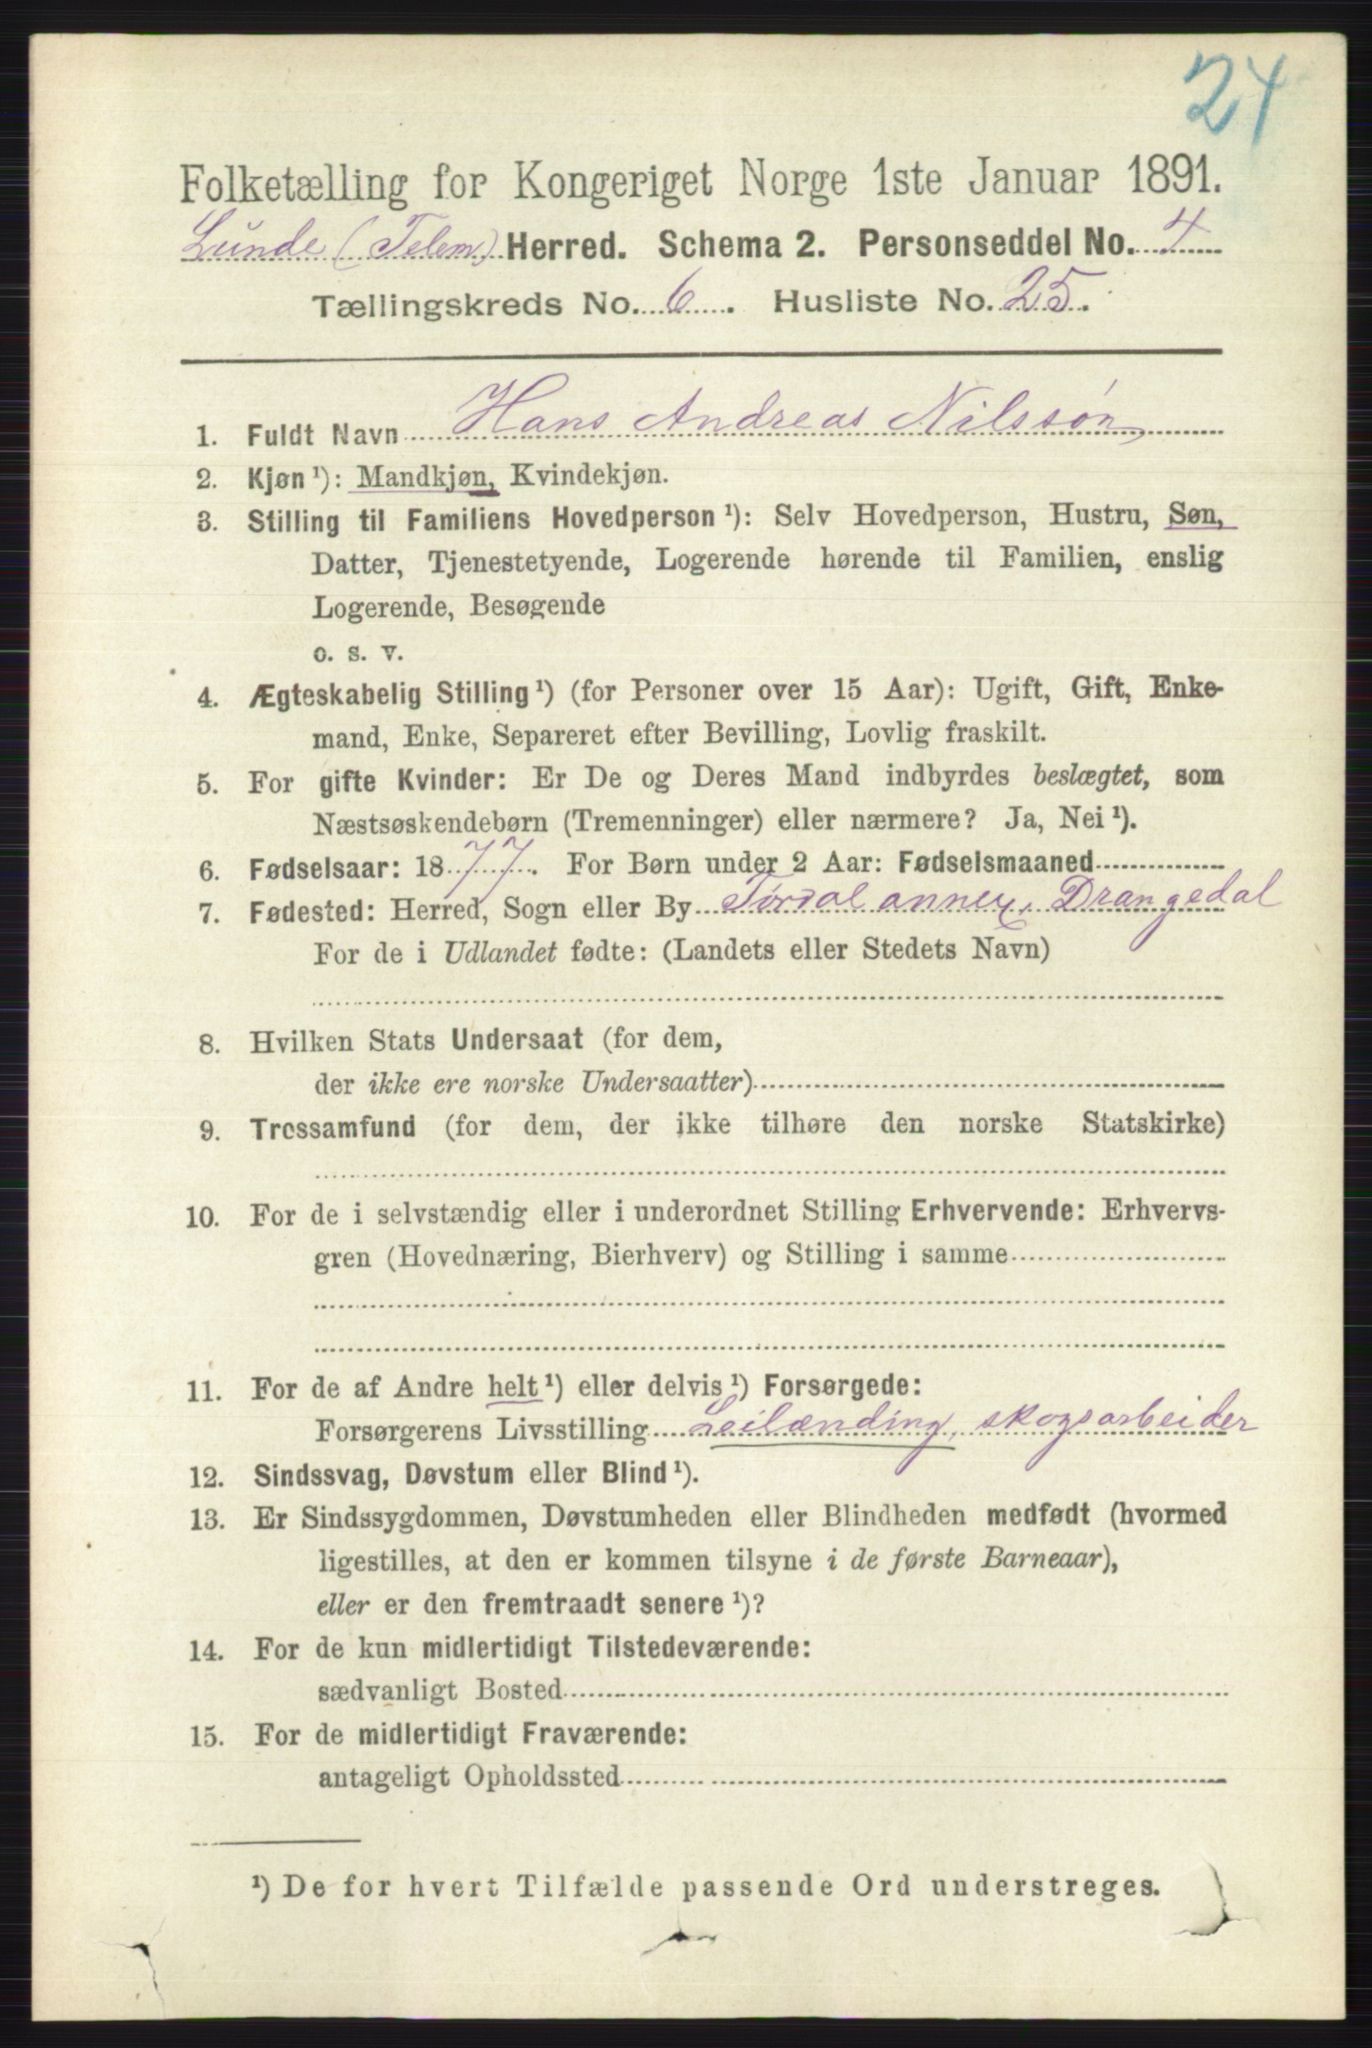 24
Folketælling for Kongeriget Norge 1ste Januar 1891.
Lunde (Telem.) Herred. Schema 2. Personseddel No. 4
Tællingskreds No. 6. Husliste No. 25.
1. Fuldt Navn Hans Andreas Nilssøn
2. Kjøn¹): Mandkjøn, Kvindekjøn.
3. Stilling til Familiens Hovedperson¹): Selv Hovedperson, Hustru, Søn,
Datter, Tjenestetyende, Logerende hørende til Familien, enslig
Logerende, Besøgende
o. s. v.
4. Ægteskabelig Stilling¹) (for Personer over 15 Aar): Ugift, Gift, Enke-
mand, Enke, Separeret efter Bevilling, Lovlig fraskilt.
5. For gifte Kvinder: Er De og Deres Mand indbyrdes beslægtet, som
Næstsøskendebørn (Tremenninger) eller nærmere? Ja, Nei¹).
6. Fødselsaar: 1877. For Børn under 2 Aar: Fødselsmaaned
7. Fødested: Herred, Sogn eller By Tørdal annex, Drangedal
For de i Udlandet fødte: (Landets eller Stedets Navn)
8. Hvilken Stats Undersaat (for dem,
der ikke ere norske Undersaatter)
9. Trossamfund (for dem, der ikke tilhøre den norske Statskirke)
10. For de i selvstændig eller i underordnet Stilling Erhvervende: Erhvervs-
gren (Hovednæring, Bierhverv) og Stilling i samme
11. For de af Andre helt¹) eller delvis¹) Forsørgede:
Forsørgerens Livsstilling Leilænding, skogsarbeider
12. Sindssvag, Døvstum eller Blind¹).
13. Er Sindssygdommen, Døvstumheden eller Blindheden medfødt (hvormed
ligestilles, at den er kommen tilsyne i de første Barneaar),
eller er den fremtraadt senere¹)?
14. For de kun midlertidigt Tilstedeværende:
sædvanligt Bosted
15. For de midlertidigt Fraværende:
antageligt Opholdssted
¹) De for hvert Tilfælde passende Ord understreges.